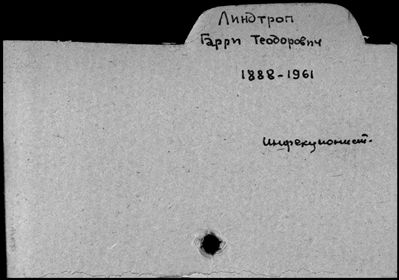 Линдтроп
Гарри Теодорович
1888-1961
Инфекционист.